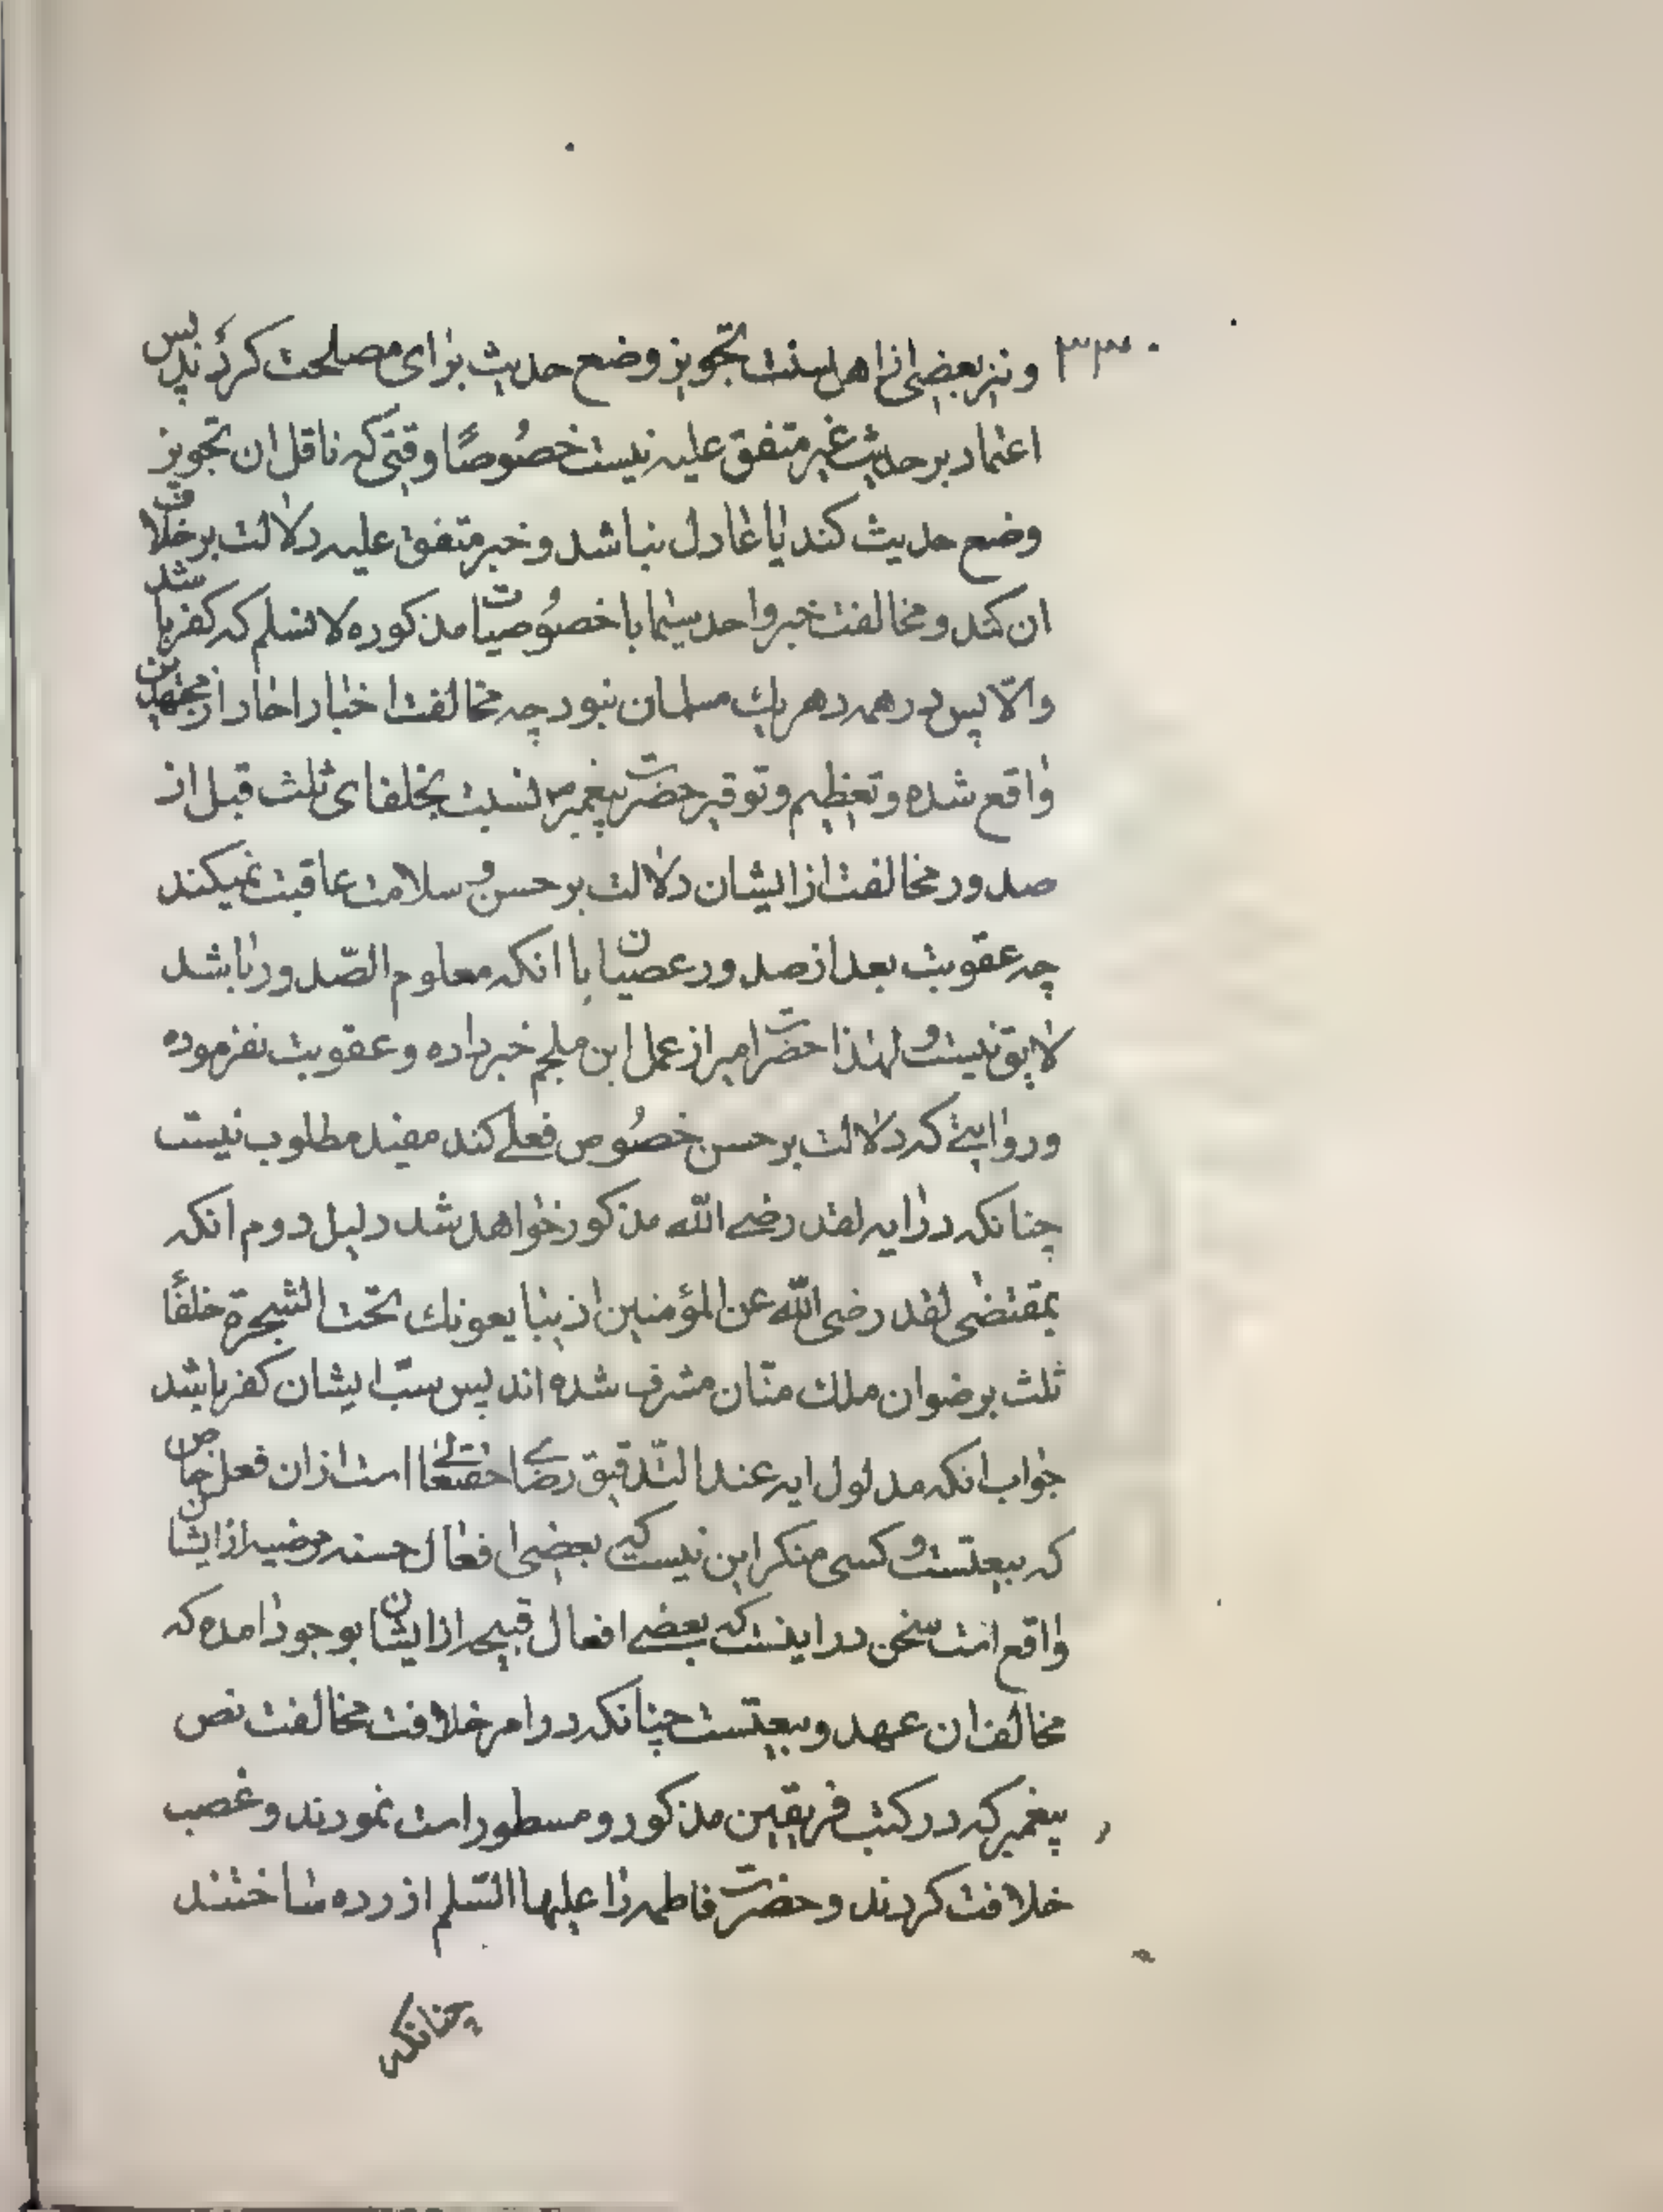 ۳۳۰
ونیز بعضی از اهل سنت تجویز وضع حدیث برای مصلحت کرده‌اند پس
اعتماد بر حدیث غیر متفق علیه نیست خصُوصًا وقتی که ناقل ان تجویز
وضع حدیث کند یا عادل نباشد و خبر متفق علیه دلالت بر خلافت
ان کند و مخالفت خبر واحد سیّما با خصُوصیات مذکوره لا نسلم که کفر باشد
والّا پس در همه دهر یك مسلمان نبود چه مخالفت اخبار احاد از مجتهدین
واقع شده و تعظیم و توقیر حضرت پیغمبر ص نسبت بخلفای ثلث قبل از
صدور مخالفت از ایشان دلالت بر حسن و سلامت عاقبت نمیکند
چه عقوبت بعد از صدور عصیان با انکه معلوم الصّدور باشد
لایق نیست و لهذا حضرت امیر از عمل ابن ملجم خبر داده و عقوبت نفرموده
و روایتے که دلالت بر حسن خصُوص فعلے کند مفید مطلوب نیست
چنانکه در ایه لقد رضے الله مذکور خواهد شد دلیل دوم انکه
بمقتضی لقد رضی الله عن المؤمنین اذ یبایعونك تحت الشجرة خلفأ
ثلث برضوان ملك منّان مشرف شده اند پس سبّ ایشان کفر باشد
جواب انکه مدلول ایه عند التّدقیق رضاے حقتعالے است از ان فعل خاص
که بیعتست و کسی منکر این نیست کہ بعضی افعال حسنه مرضیه از ایشان
واقع است سخن در اینست که بعضے افعال قبیحه از ایشان بوجود امده که
مخالف ان عهد و بیعتست چنانکه در امر خلافت مخالفت نص
پیغمبر که در کتب فریقین مذکور و مسطور است نمودند و غصب
خلافت کردند و حضرت فاطمه را علیها السّلم ازرده ساختند
چنانکه